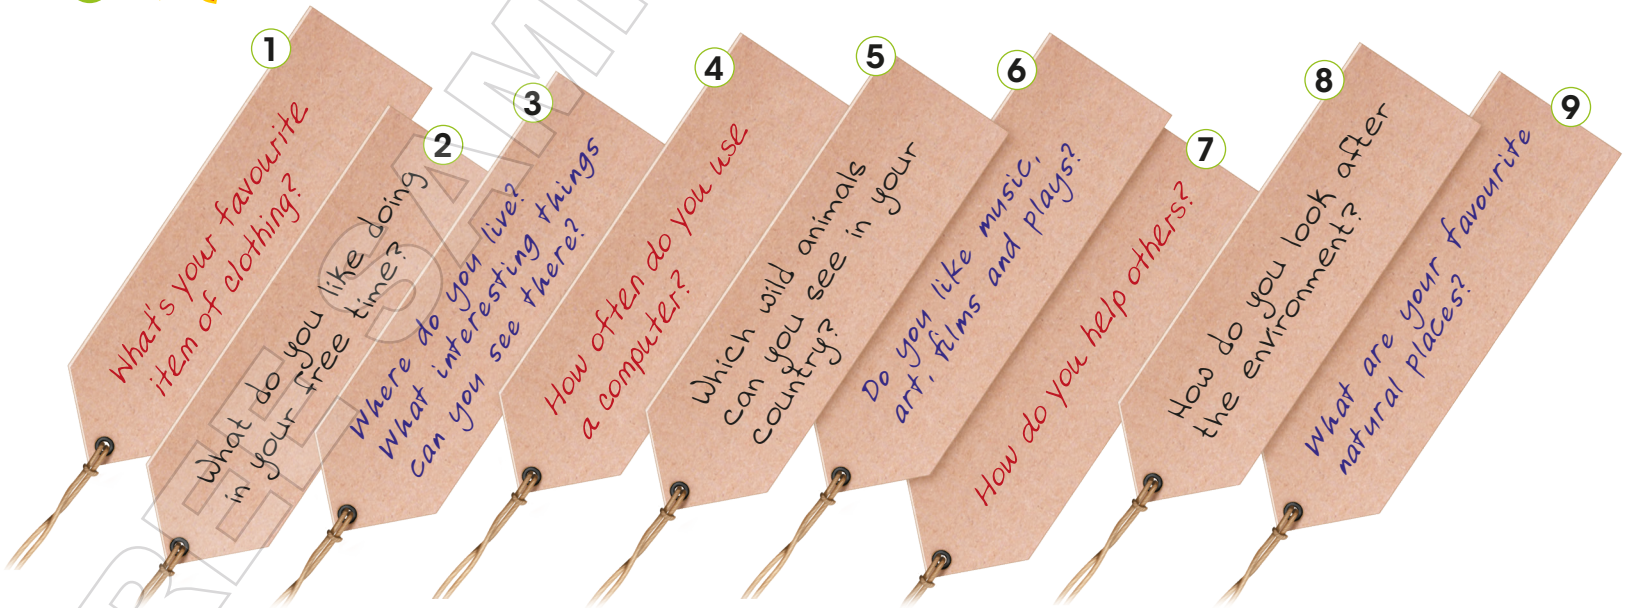 1
What's your favourite
item of clothing?
2
What do you like doing
in your free time?
3
Where do you live?
What interesting things
can you see there?
4
How often do you use
a computer?
5
Which wild animals
can you see in your
country?
6
Do you like music,
art, films and plays?
7
How do you help others?
8
How do you look after
the environment?
9
What are your favourite
natural places?